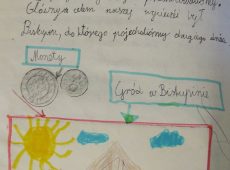 celem naszej wycieczki był
Biskupin, do którego pojechaliśmy drugiego dnia.
Monety
Gród w Biskupinie